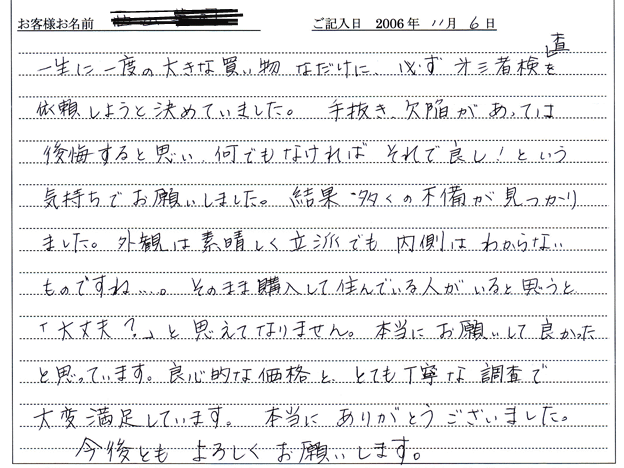 お客様お名前 ご記入日 2006年 11月 6日
一生に一度の大きな買い物なだけに、必ず才三者検査を
依頼しようと決めていました。 手抜き、欠陥があっては
後悔すると思い、何でもなければ それで良し!という
気持ちでお願いしました。結果、多くの不備が見つかり
ました。外観は素晴しく立派でも内側はわからない
ものですね…。 そのまま購入して住んでいる人がいると思うと
「大丈夫?」と思えてなりません。本当にお願いして良かった
と思っています。良心的な価格と、とても丁寧な調査で
大変満足しています。 本当に ありがとうございました。
今後とも よろしくお願いします。